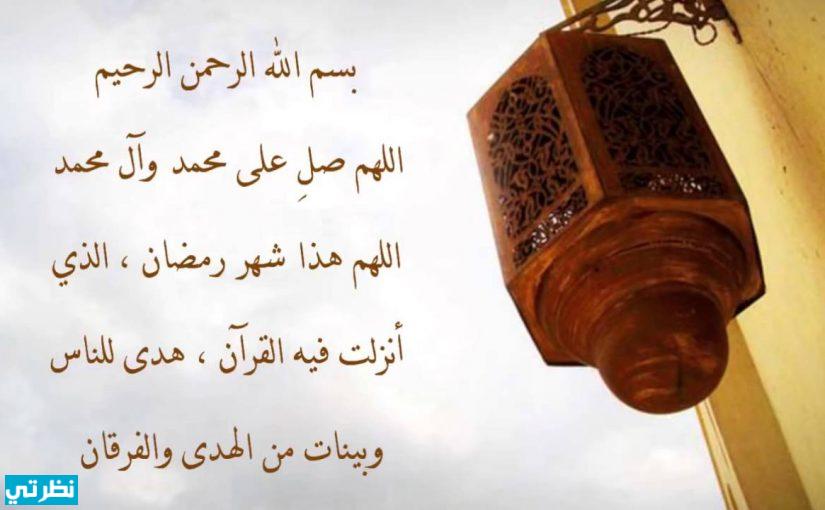 بسم الله الرحمن الرحيم
اللهم صلِ على محمد وآل محمد
اللهم هذا شهر رمضان ، الذي
أنزلت فيه القرآن ، هدى للناس
وبينات من الهدى والفرقان
نظرتي